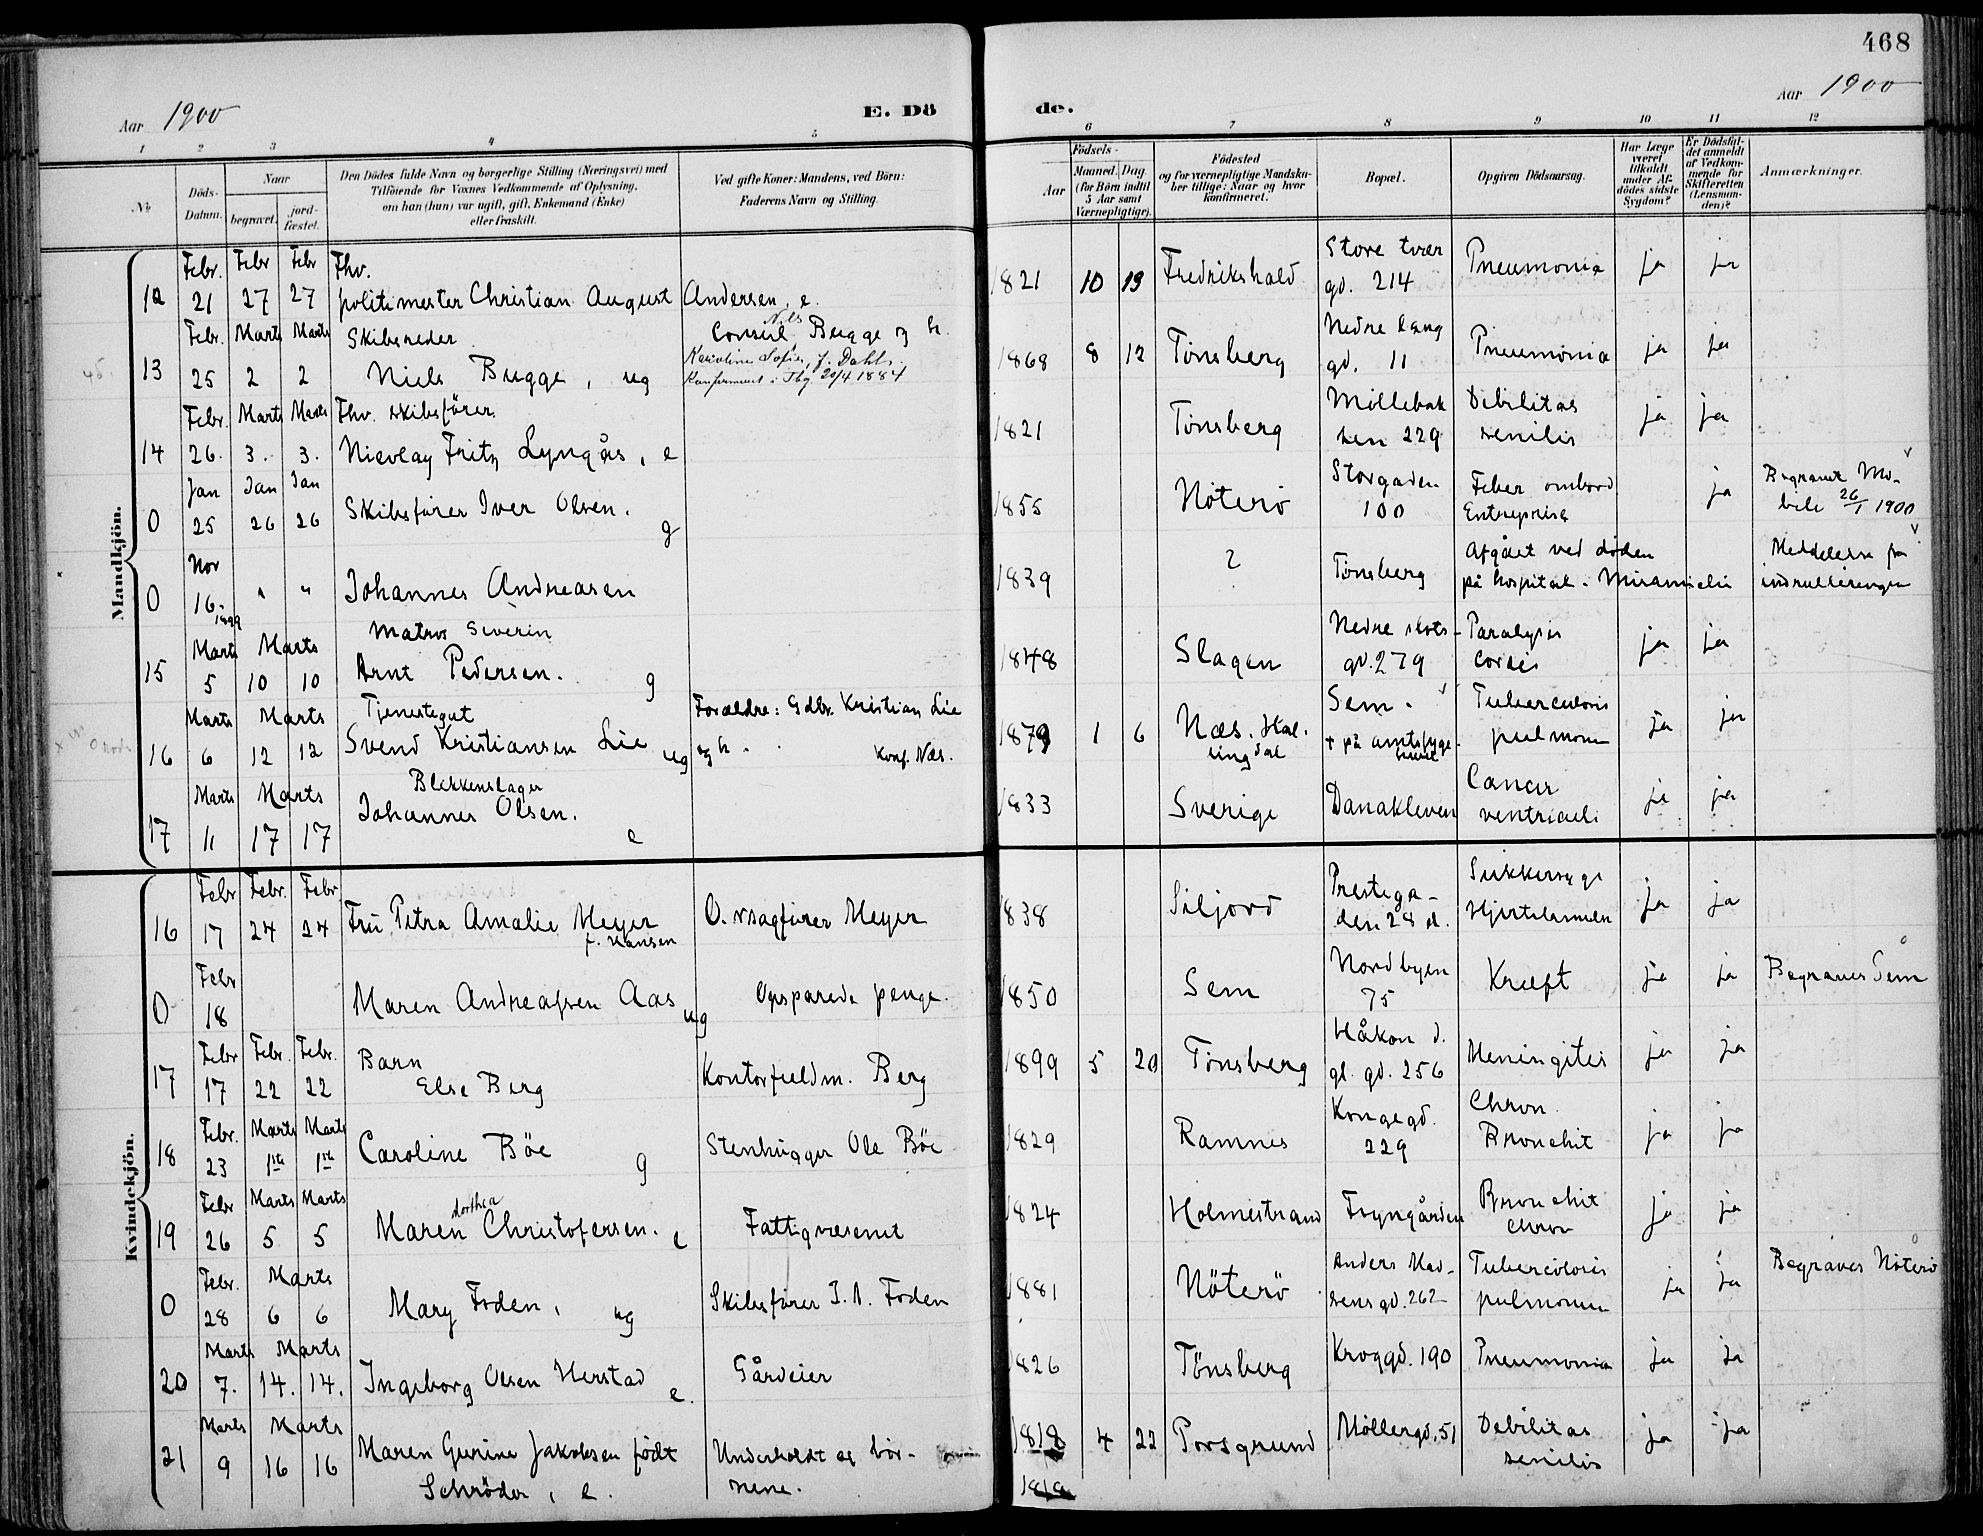 468
Aar 1900
E. Dö
de.
Aar 1900
1 2 3 4 5 6 7 8 9 10 11 12
№
Döds-Datum.
Naar
begravet.
jord-fæstet.
Den Dödes fulde Navn og borgerlige Stilling (Næringsvei) med
Tilföiende for Voxnes Vedkommende af Oplysning,
om han (hun) var ugift, gift, Enkemand (Enke)
eller fraskilt.
Ved gifte Koner: Mandens, ved Börn:
Faderens Navn og Stilling.
Födsels-
Aar
Maaned. Dag.
(for Börn indtil
5 Aar samt
Værnepligtige).
Födested
og for værnepligtige Mandska-
ber tillige: Naar og hvor
konfirmeret.
Bopæl.
Opgiven Dödsaarsag.
Har Læge
været
tilkaldt
under Af-
dödes sidste
Sygdom?
Er Dödsfal-
det anmeldt
af Vedkom-
mende for
Skifteretten
(Lensman-
den)?
Anmærkninger.
Mandkjön.
Febr. Febr Febr Fhv. Store tvær
12 21 27 27 politimester Christian August Andersen, e. 1821 10 13 Fredrikshald gd. 214 Pneumonia ja ja
Febr. Marts Marts Skibsreder Consul Nils Bugge og h. Nedre lang
13 25 2 2 Niels Bugge, ug Karoline Sofie, f. Dahl. 1868 8 12 Tönsberg gd. 11 Pneumonia ja ja
Konfirmeret i Tbg 20/4 1884
Febr. Marts Marts Fhv. skibsförer Möllebak Debilitas
14 26. 3. 3. Nicolay Fritz Lyngås, e 1821 Tönsberg ken 229 senilis ja ja
Jan Jan Jan Storgaden Feber ombord Begravet Mo-
0 25 26 26 Skibsförer Iver Olsen. g 1855 Nöterö 100 Entreprise ja bile 26/1 1900
Nov Afgået ved döden Meddelelse fra
0 16. 1899 " " Johannes Andreasen 1839 ? Tönsberg på hospital i Miramichi indrulleringen
Matros Severin
Marts Marts Nedre slots- Paralysis
15 5 10 10 Arnt Pedersen. g 1848 Slagen gd. 279 cordis ja ja
Marts Marts Tjenestegut Forældre: Gdbr. Kristian Lie Sem. Tuberculosis
16 6 12 12 Svend Kristiansen Lie ug og h. Konf. Næs. 1879 1 6 Næs. Hal-lingdal + på amtssyge- pulmonum ja ja
Marts Marts Blikkenslager Cancer
17 11 17 17 Johannes Olsen. e 1833 Sverige Danakleven ventriculi ja ja
Kvindekjön.
Febr Febr. Febr. Prestega- Sukkersyge
16 17 24 24 Fru Petra Amalie Meyer f. Hansen O.rsagförer Meyer 1838 Siljord den 28 d. Hjertelammelse ja ja
Febr Nordbyen
0 18 Maren Andreassen Aas ug Opsparede penge. 1850 Sem 75 Kræft ja ja Begraves Sem
Febr Febr. Febr. Barn Håkon d.
17 17 22 22 Else Berg Kontorfuldm. Berg 1899 5 20 Tönsberg gl. gd. 256 Meningitis ja ja
Febr. Marts Marts Kongegd. Chron.
18 23 1ste 1ste Caroline Böe g Stenhugger Ole Böe 1829 Ramnes 229 Bronchit ja ja
Febr Marts Marts Bronchit
19 26 5 5 Maren dorthea Christofersen. e Fattigvæsenet 1824 Holmestrand Fayngården chron ja ja
Febr. Marts Anders Mad- Tuberculosis
0 28 6 6 Mary Foden, ug Skibsförer I. A. Foden 1881 Nöterö sens gd. 262 pulmonum ja ja Begraves Nöterö
Marts Marts
20 7. 14. 14. Ingeborg Olsen Herstad e. Gårdeier 1826 Tönsberg Kroggd. 190 Pneumonia ja ja
Marts Marts
21 9 16 16 Maren Gurine Jakobsen födt Underholdt af bör- 1818 4 22 Porsgrund Möllergd. 51 Debilitas ja ja
Schröder, e. nene. 1818 senilis